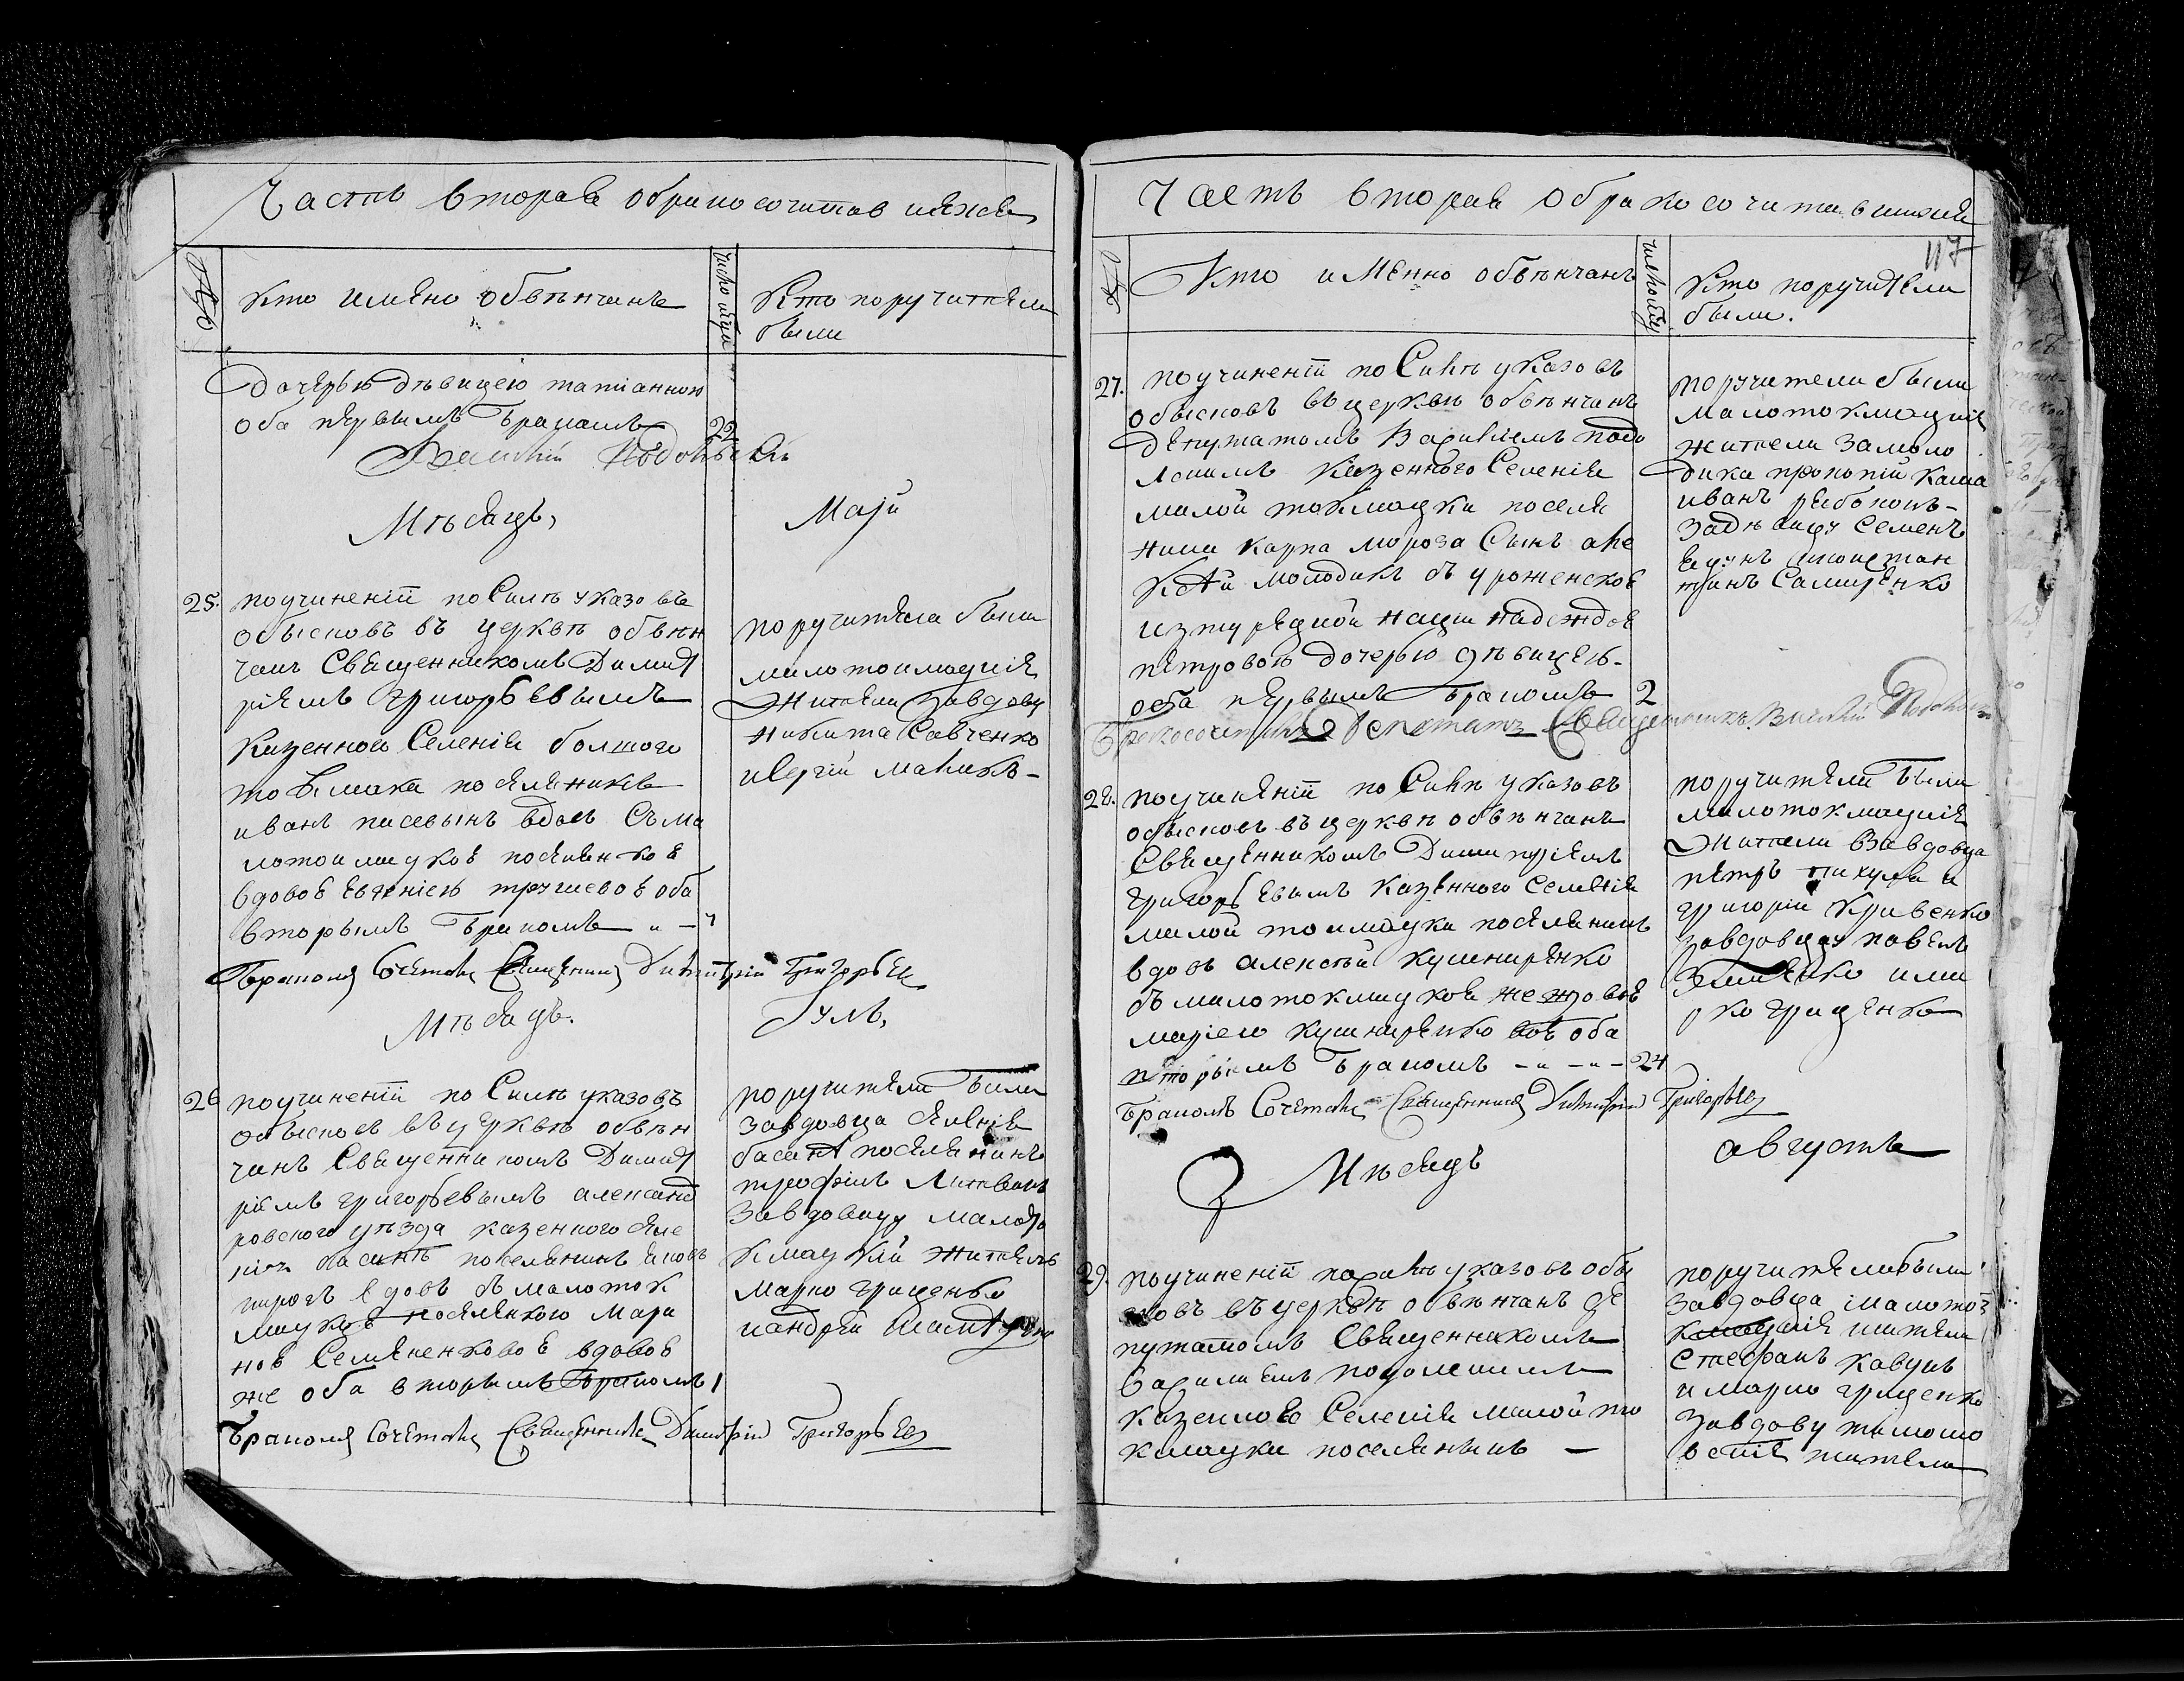 Часть вторая о бракосочитавшихся
Кто имяно обвѣнчанъ
число
Кто поручители
были
дочерью дѣвицею татіанною
оба первымъ бракомъ 22
Василій Подольскій
Мѣсяцъ,
Маій
25. по учиненіи по Силѣ указовъ
обысковъ въ церквѣ обвѣн
чанъ Священникомъ Димит
ріемъ Григорьевымъ
Казенного Селенія болшого
токмака поселянинъ
иванъ вдовъ Съ ма
лотокмацкоѣ поселянкоѣ
вдовоѣ евгеніею оба
вторымъ бракомъ 7
поручителя были
малотокмацкія
Жители Завдовц
Никита Савченко
Бракомъ Сочеталъ Священникъ Димитрій Григорьевъ
Мѣсяцъ.
Іуль,
26 по учиненіи по Силѣ указовъ
обысковъ въ церквѣ обвѣн
чанъ Священникомъ Димит
ріемъ Григорьевымъ александ
ровского уѣзда казенного селе
нія басань поселянинъ яковъ
пирогъ вдовъ съ малоток
мацкоѣ поселянкою Мари
ноѣ Семененковоѣ вдовоѣ
же оба вторымъ бракомъ 1
поручители были
Завдовца Селенія
басань поселянинъ
трофимъ Литвинъ
Завдовицу малото
кмацкій житель
марко Гриценко
иандрей
Бракомъ Сочеталъ Священникъ Димитрій Григорьевъ
Часть вторая о бракосочитавшихся
117
Кто имЕнно обвѣнчанъ
число
Кто поручители
были.
27. по учиненіи по Силѣ указовъ
обысковъ въ церквѣ обвѣнчанъ
депутатомъ Василіемъ подо
лскимъ Казенного Селенія
малой токмачки поселя
нина Карпа мороза Сынъ але
ксѣй молодикъ съ уроженскоѣ
из турецкой нации надеждоѣ
петровою дочерью дѣвицею.
оба первымъ бракомъ 2
поручители были
малотокмацкія
жители Замоло
дика прокопій Каша
иванъ рябоконь-
За дѣвицу Семенъ
тинъ
Бракосочеталъ Депутатъ Священникъ Василій Подольскій
28. по учиненіи по Силѣ указовъ
обысковъ въ церквѣ обвѣнчанъ
Священникомъ Димитріемъ
Григорьевымъ Казенного Селенія
малой токмачки поселянинъ
вдовъ алексѣй Кушниренко
съ малотокмацкоѣ же вдовоѣ
маріею Кушниренковоѣ оба
вторымъ бракомъ - 24
поручители были
малотокмацкія
Жители Завдовца
петръ пикула и
григорій Кривенко
Завдовицу павелъ
Землянко има
рко гриценко
Бракомъ Сочеталъ Священникъ Димитрій Григорьевъ
Мѣсяцъ
августъ
29. по учиненіи по Силѣ указовъ обы
сковъ въ церквѣ обвѣнчанъ де
путатомъ Священникомъ
Василіемъ подолскимъ
Казенного Селенія малой то
кмацки поселянинъ -
поручители были
завдовца малото
кмацкія жители
Стефанъ Кавунъ
и марко гриценко
завдову тимошо
вскіе жители